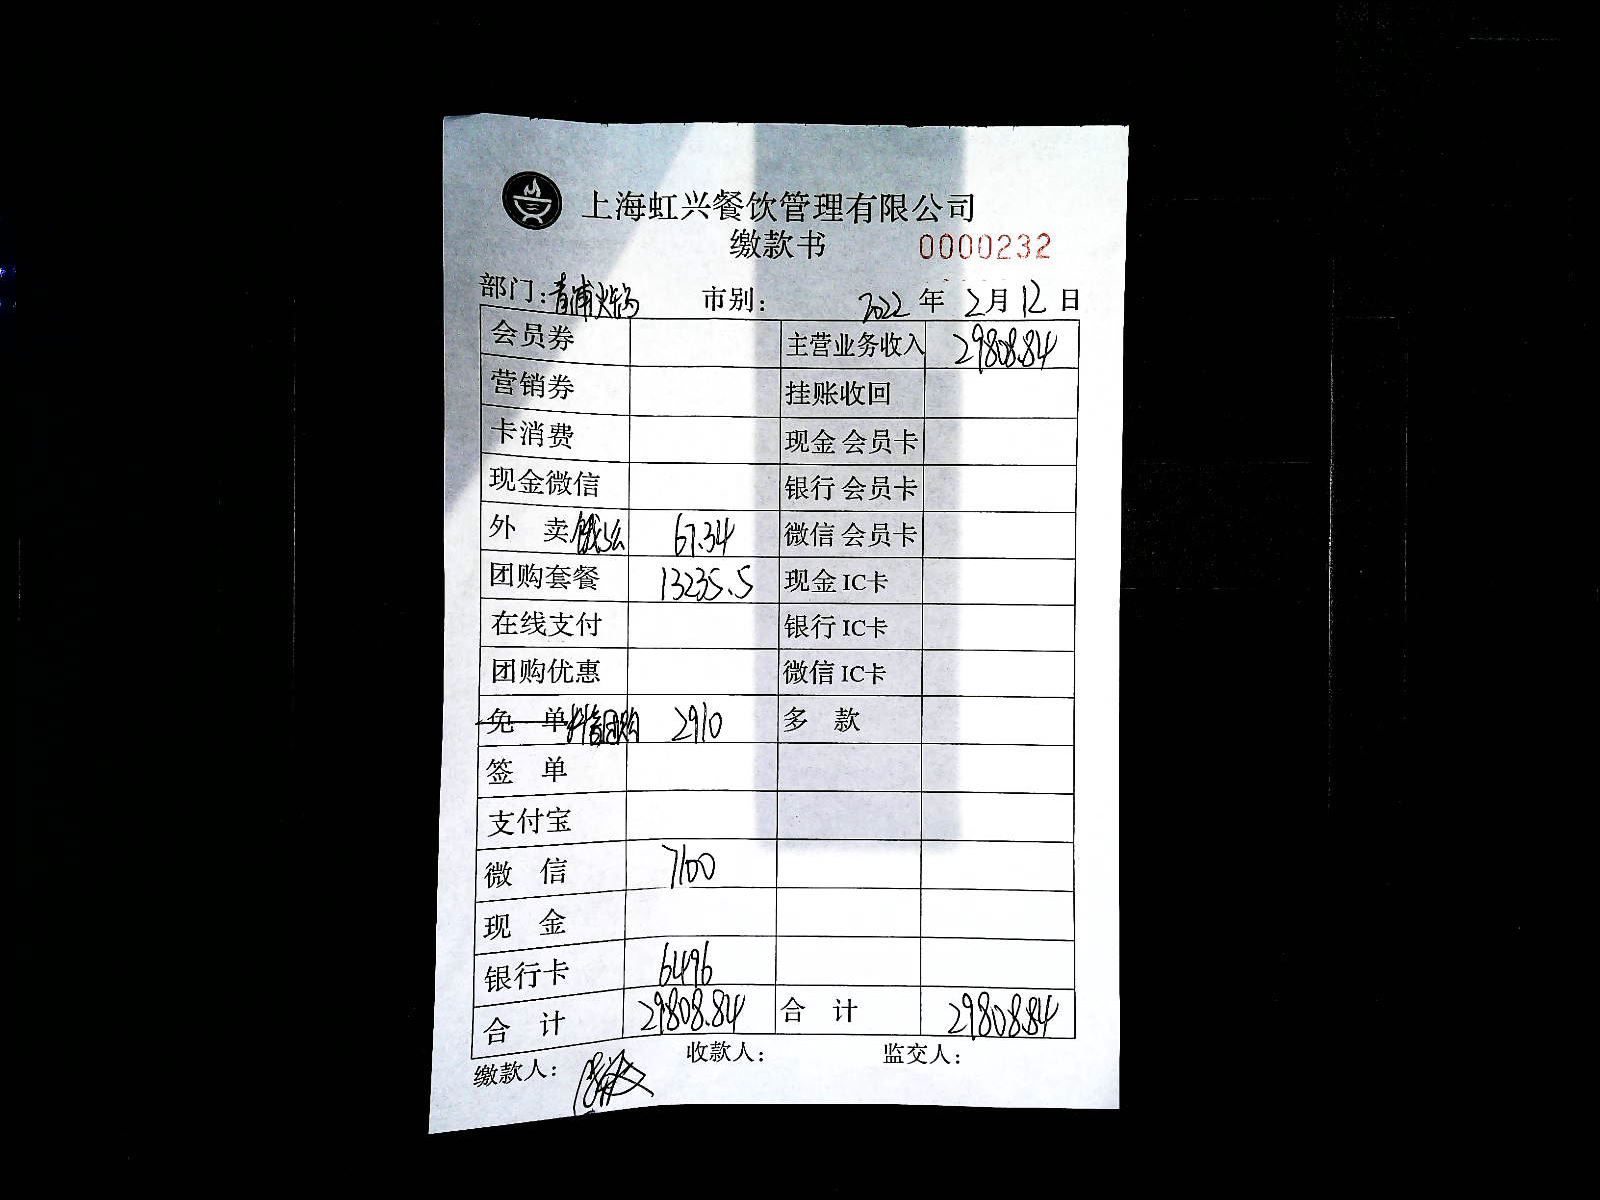 上海虹兴餐饮管理有限公司
缴款书 0000232
部门：青浦火锅 市别： 2022 年 2月 12 日
会员券 主营业务收入 29808.84
营销券 挂账收回
卡消费 现金 会员卡
现金微信 银行 会员卡
外 卖 饿了么 67.34 微信 会员卡
团购套餐 13235.5 现金 IC卡
在线支付 银行 IC卡
团购优惠 微信 IC卡
免 单 抖音团购 2910 多 款
签 单
支付宝
微 信 7100
现 金
银行卡 6496
合 计 29808.84 合 计 29808.84
缴款人： 收款人： 监交人：